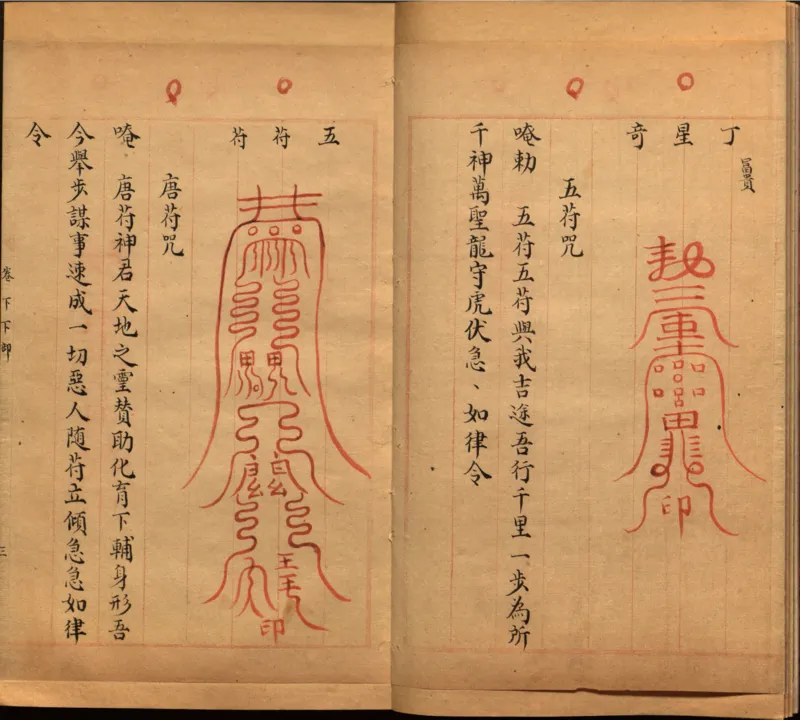 冨貴
丁星奇
印
五苻咒
唵勅 五苻五苻與我吉途吾行千里一步為所
千神萬聖龍守虎伏急、如律令
五苻苻
印
唐苻咒
唵 唐苻神君天地之霊賛助化育下輔身形吾
今舉步謀事速成一切惡人随苻立傾急急如律
令
卷下下印
三